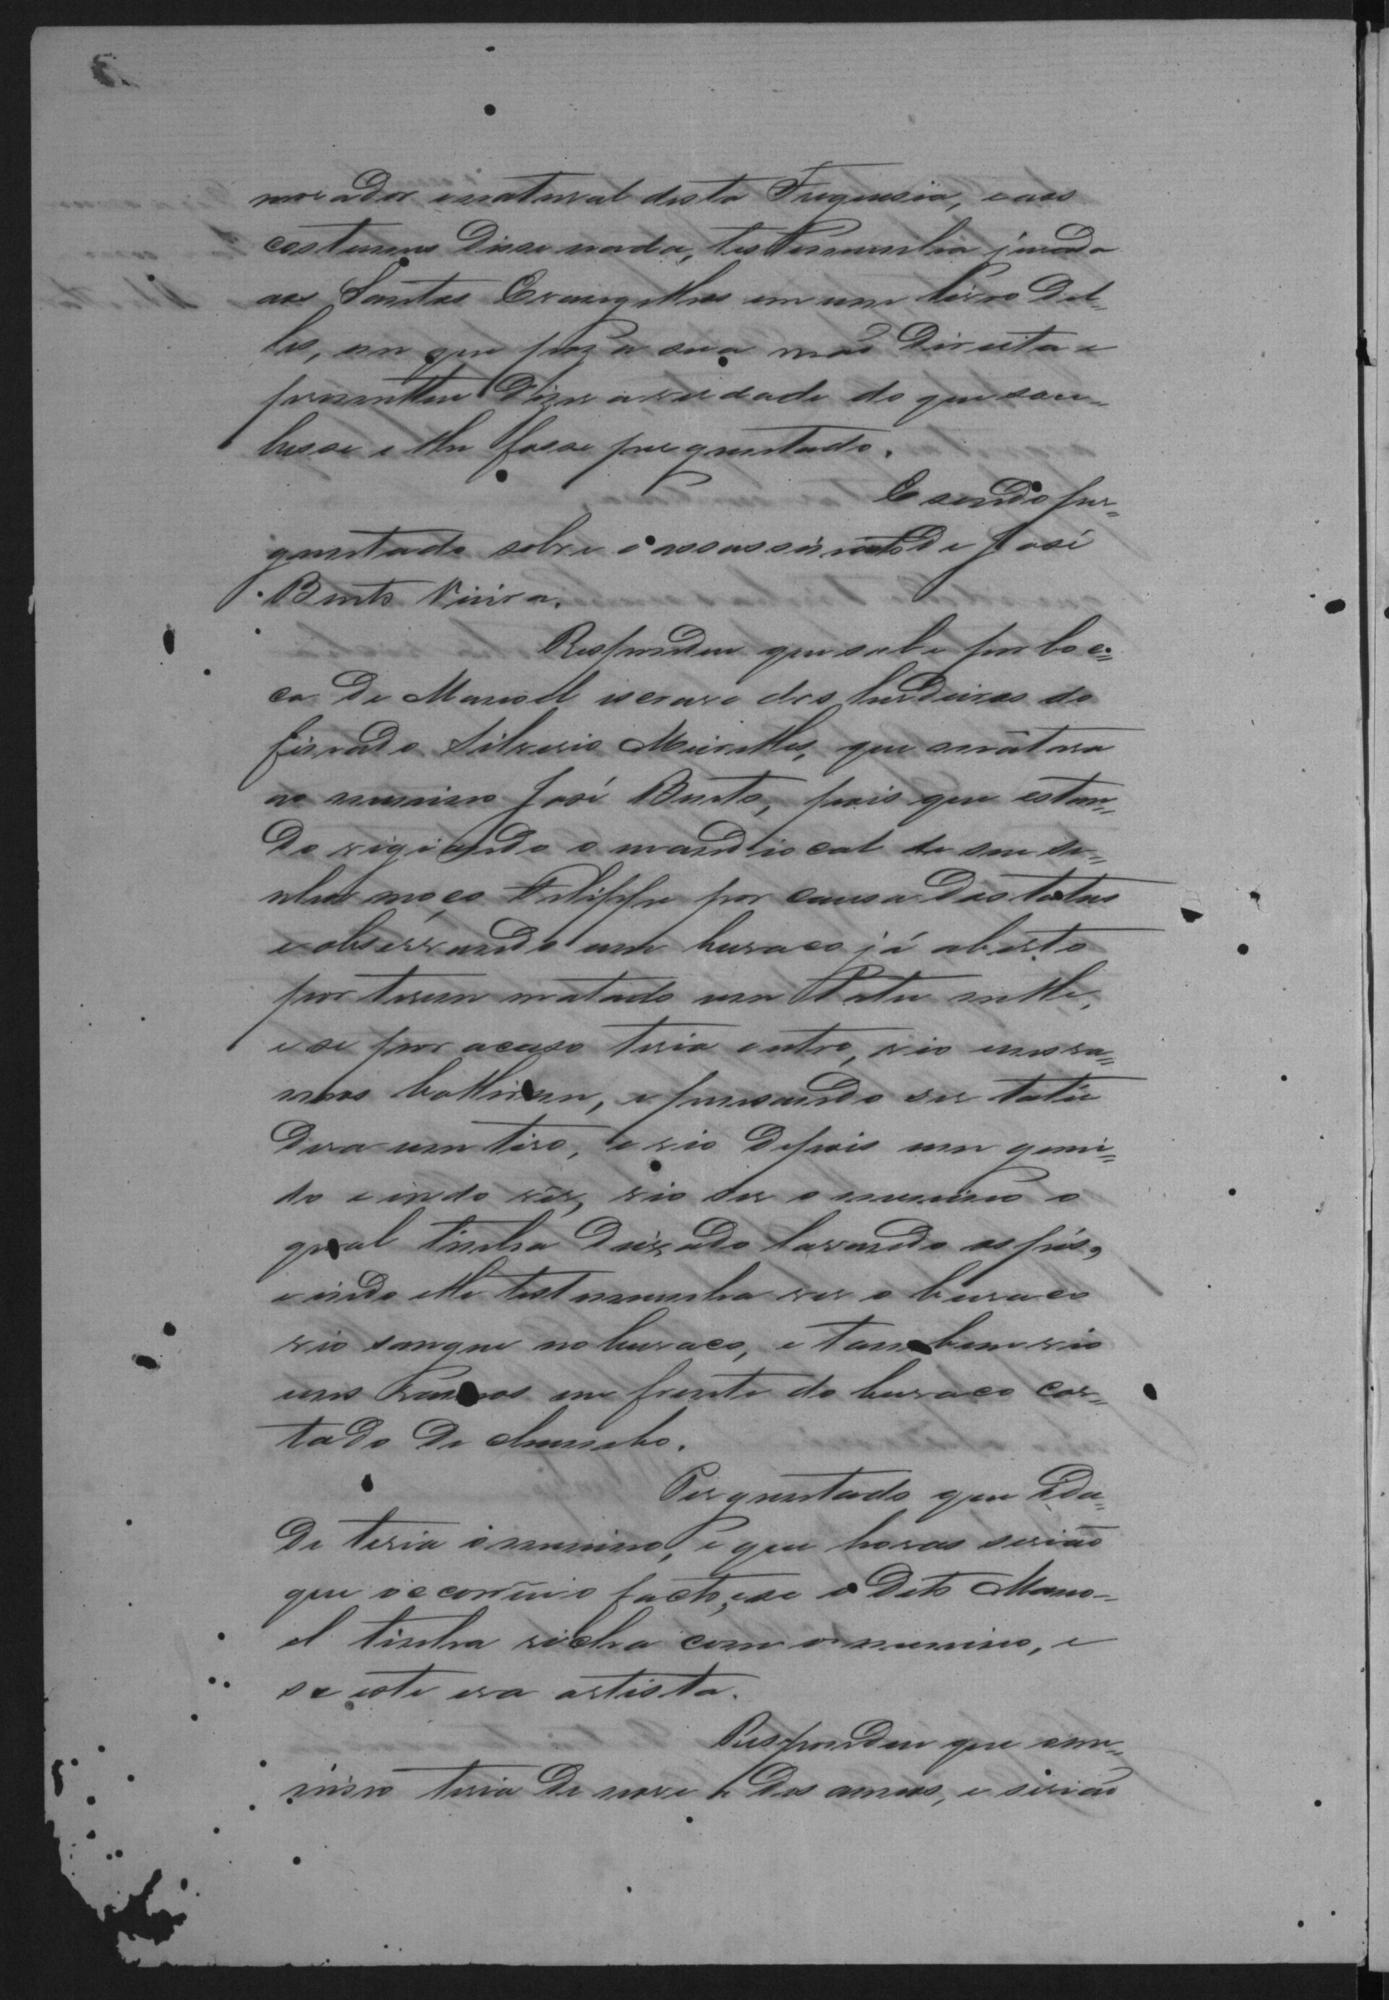 morador e natural desta Freguesia, e aos
costumes disse nada, testemunha jurada
aos Santos Evangelhos em um livro del-
les, em que poz a sua mão direita e
prometteu dizer a verdade do que sou-
besse e lhe fosse preguntado.
E sendo pre-
guntado sobre o assassinato de José
Bento Vieira.
Respondeu que sabe por boc-
ca de Manoel escravo dos herdeiros do
finado Silverio Meirelles, que matara
ao menino José Bento, pois que estan-
do vigiando o mandiocal de seu se-
nhor moço Felippe por causa dos tatus
e observando um buraco já aberto
por terem matado um Tatu nelle,
e se por acaso teria outro, vio uns ra-
mos bollirem, e pensando ser tatú
dera um tiro, e vio depois um gemi-
do e indo vêr, vio ser o menino o
qual tinha deixado lavando os pés,
e indo elle testemunha ver o buraco
vio sangue no buraco, e tambem vio
uns ramos em frente do buraco cor-
tado de chumbo.
Perguntado que ida-
de teria o menino, e que horas serião
que occorrêu o facto, e se o dito Mano-
el tinha richa com o menino, e
se este era artista.
Respondeu que o me-
nino teria de nove a des annos, e serião